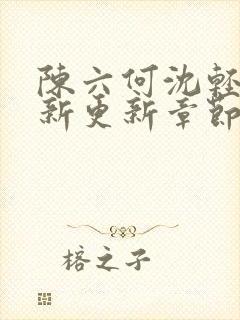 陳六何沈輕
新更新章節
榕之子